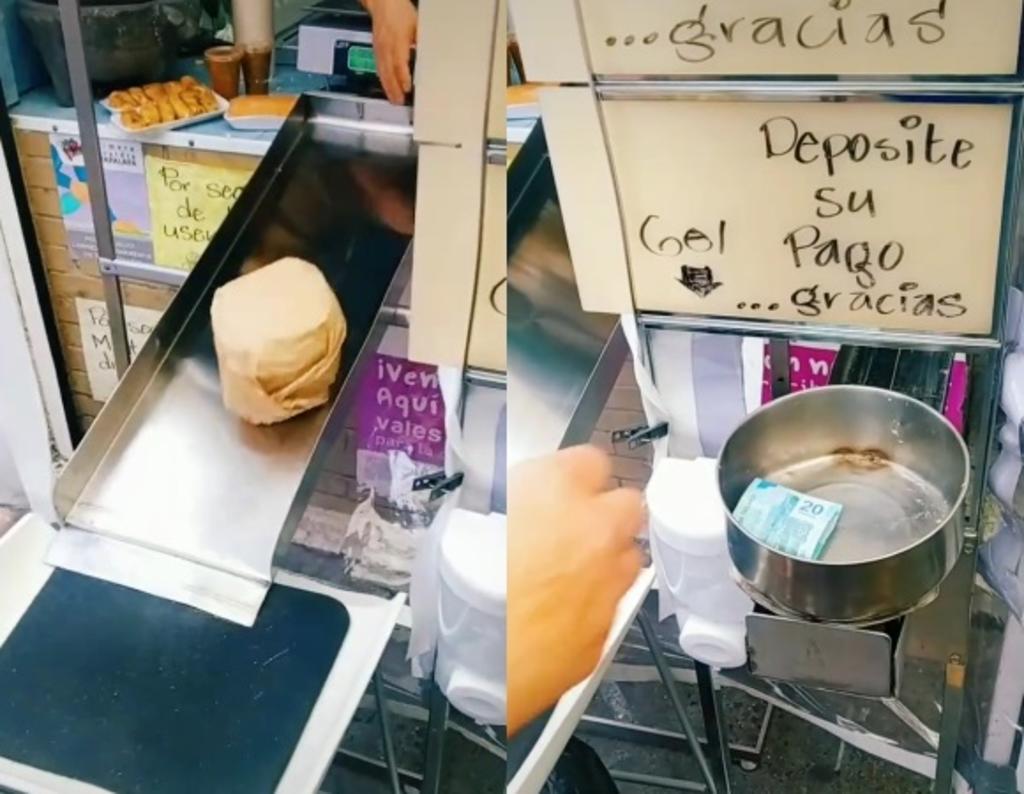 Por se
de
usou
¡Ven
Aquí
vales
para la
...gracias
Deposite
su
Gel Pago
...gracias
20